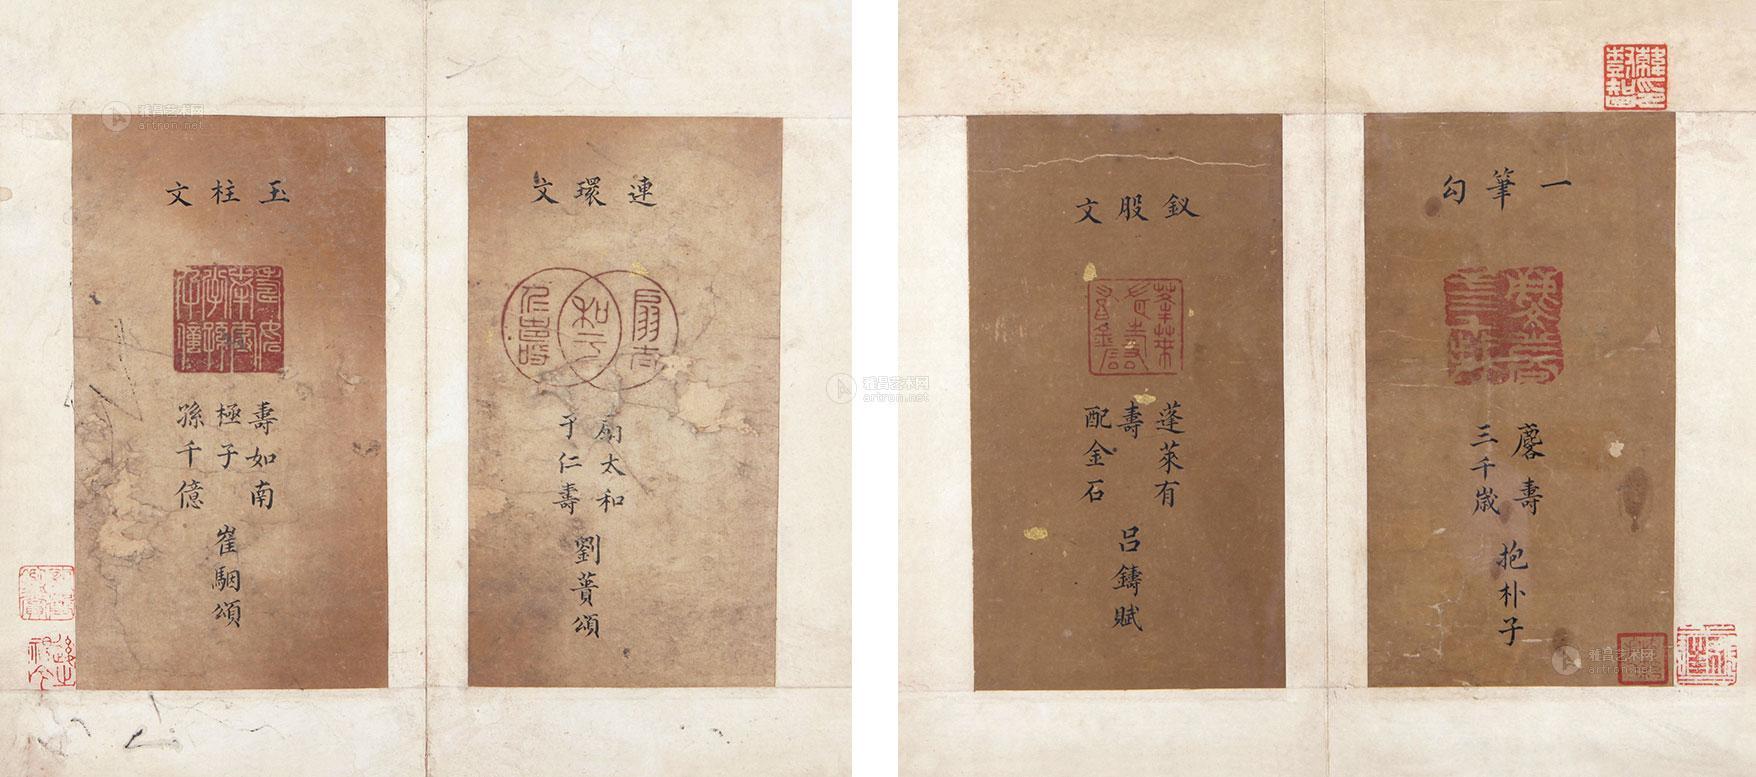 一筆勾
麐壽
三千歲
抱朴子
釵股文
蓬萊有
壽
配金石
呂鑄賦
連環文
扇太和
于仁壽
劉蕡頌
玉柱文
壽如南
極子
孫千億
崔駰頌
雅昌艺术网
artron.net